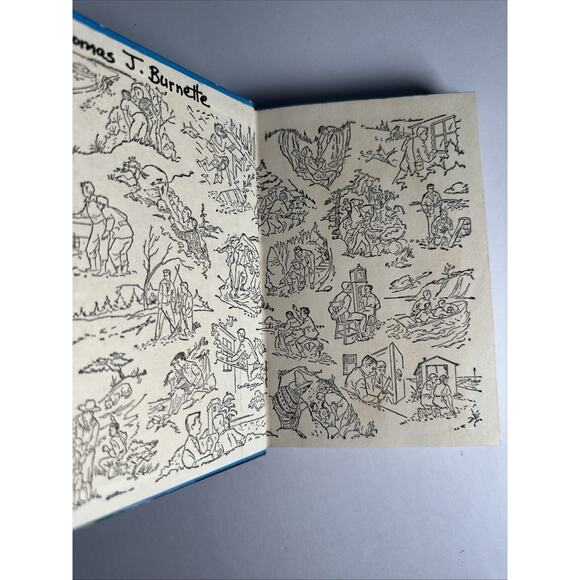 omas J. Burnette